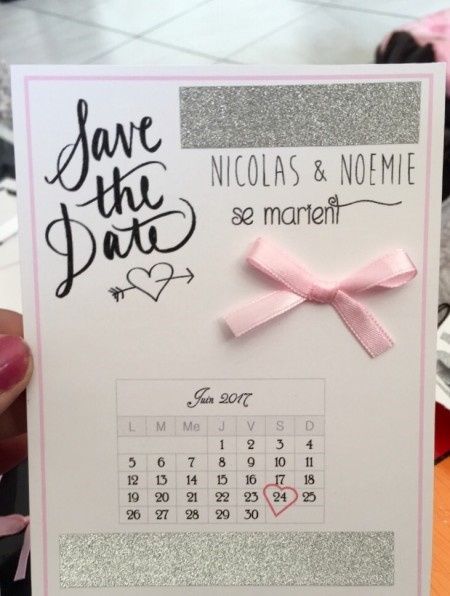 Save
the
Date
NICOLAS & NOEMIE
se marient
Juin 2017
L M Me J V S D
1 2 3 4
5 6 7 8 9 10 11
12 13 14 15 16 17 18
19 20 21 22 23 24 25
26 27 28 29 30